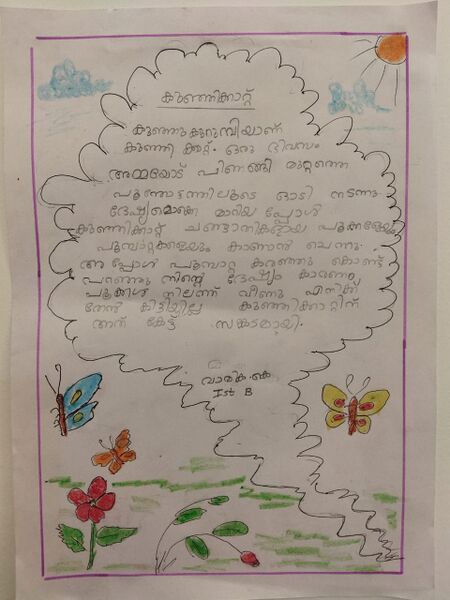 കുഞ്ഞിക്കാറ്റ്
കുഞ്ഞുകുറുമ്പിയാണ്
കുഞ്ഞി ക്കാറ്റ്. ഒരു ദിവസം
അമ്മയോട് പിണങ്ങി മുറ്റത്തെ
പൂന്തോട്ടത്തിലൂടെ ഓടി നടന്നു
ദേഷ്യമൊക്കെ മാറിയ പ്പോൾ
കുഞ്ഞിക്കാറ്റ് ചങ്ങാതികളായ പൂക്കളേയും
പൂമ്പാറ്റകളെയും കാണാൻ ചെന്നു.
അ പ്പോൾ പൂമ്പാറ്റ കരഞ്ഞു കൊണ്ട്
പറഞ്ഞു നിന്റെ ദേഷ്യം കാരണം
പൂക്കൾ നിലത്ത് വീണു എനിക്ക്
തേൻ കിട്ടിയില്ല കുഞ്ഞിക്കാറ്റിന്
അത് കേട്ട് സങ്കടമായി.
വാമിക.കെ
Ist B